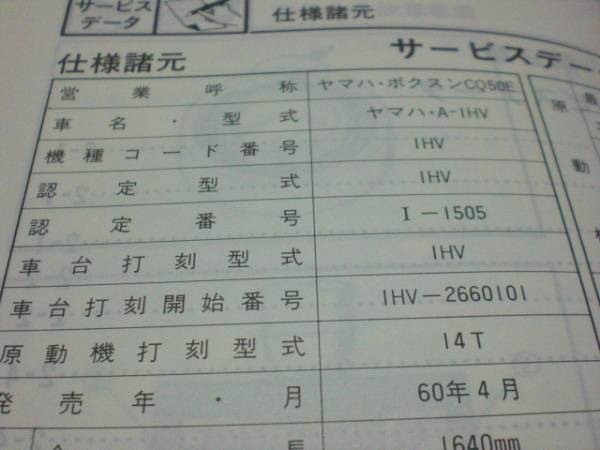 サービス
データ
仕様諸元
サービスデー
仕様諸元
営業呼称 ヤマハ・ボクスンCQ50E
車名・型式 ヤマハ・A-1HV
機種コード番号 1HV
認定型式 1HV
認定番号 I-1505
車台打刻型式 1HV
車台打刻開始番号 1HV-2660101
原動機打刻型式 14T
発売年・月 60年4月
長 1640mm
原
動